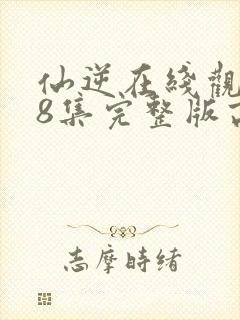 仙逆在綫觀
8集完整版
志摩時緒